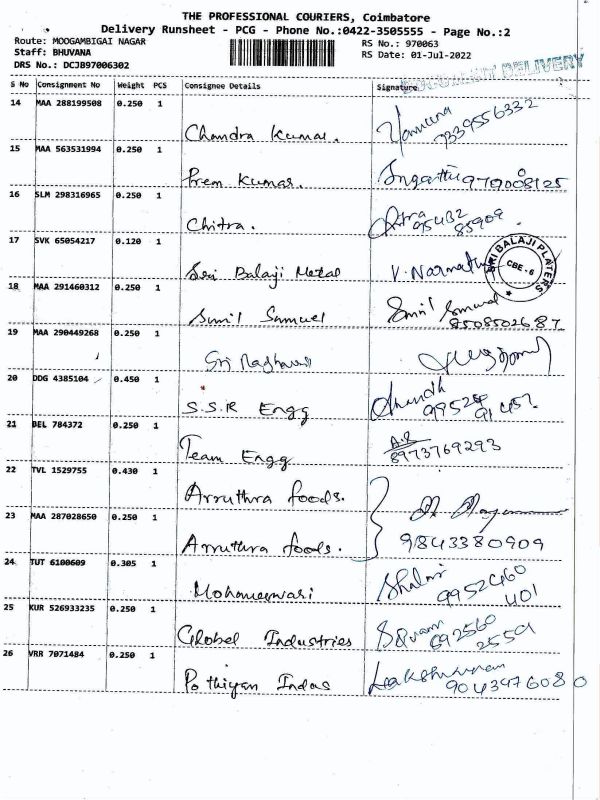 THE PROFESSIONAL COURIERS, Coimbatore
Delivery Runsheet - PCG - Phone No.:0422-3505555 - Page No.:2
Route: MOOGAMBIGAI NAGAR
RS No.: 970063
Staff: BHUVANA
RS Date: 01-Jul-2022
DRS No.: DCJB97006302
DELIVERY
S No Consignment No Weight PCS Consignee Details Signature
14 MAA 288199508 0.250 1
Chandra Kumar. 7339556332
15 MAA 563531994 0.250 1
Prem Kumar.
16 SLM 298316965 0.250 1
Chitra. 95432
85909
17 SVK 65054217 0.120 1
Sri Balaji Metal V. Narmatha
SRI BALAJI PLATERS
CBE - 6
18 MAA 291460312 0.250 1
Sunil Samuel
8508502687
19 MAA 290449268 0.250 1
Sri Raghava
20 DDG 4385104 0.450 1
S.S.R Engg
21 BEL 784372 0.250 1
Team Engg 8973769293
22 TVL 1529755 0.430 1
Arruthra foods.
23 MAA 287028650 0.250 1
Arruthra foods. 9843380909
24 TUT 6100609 0.305 1
Shalini
9952460
401
25 KUR 526933235 0.250 1
Global Industries
892560
2559
26 VRR 7071484 0.250 1
Pothiyan Indus
9043476080